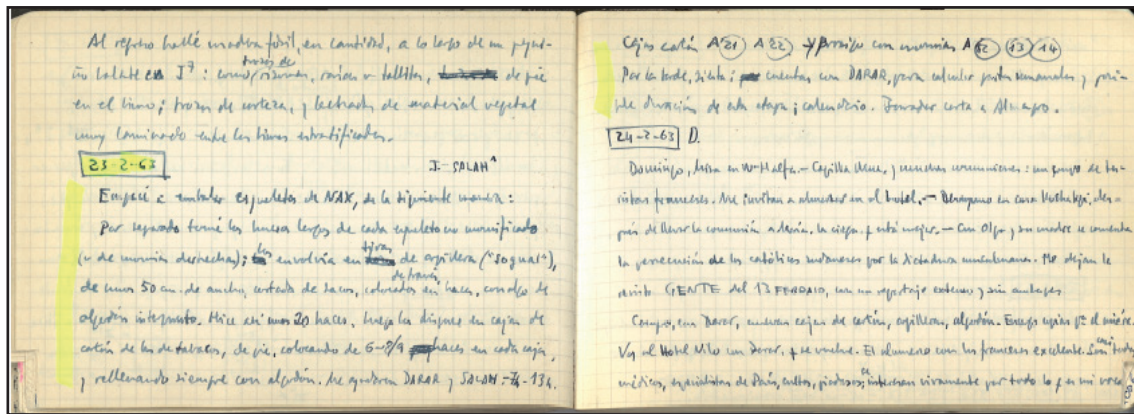 Al regreso hallé madera fósil, en cantidad, a lo largo de un peque-
ño en J7: como trozos de raíces o tallitos, de pie
en el limo; trozos de corteza, y lechadas de material vegetal
muy laminado entre los limos estratificados.
23-2-63 J.-SALAH
Empecé a embalar esqueletos de NAX, de la siguiente manera:
Por separado tomé los huesos largos de cada esqueleto no momificado
(o de momias deshechas); los envolvía en tiras de arpillera ("sogual"),
de unos 50 cm. de ancho, cortada de sacos, colocados de través en haces, con algo de
algodón interpuesto. Hice así unos 20 haces, luego los dispuse en cajas de
cartón de las de tabacos, de pie, colocando de 6-8/9 haces en cada caja,
y rellenando siempre con algodón. Me ayudaron DARAR y SALAH: 7¼-13¼.
Cajas cartón A21 A22 y prosigo con momias A12 13 14
Por la tarde, siesta; cuentas con DARAR, para calcular gastos semanales y posi-
ble duración de esta etapa; calendario. Borrador carta a Almagro.
24-2-63 D.
Domingo, misa en W-Halfa.- Capilla llena, y muchas comuniones: un grupo de tu-
ristas franceses. Me invitan a almorzar en el hotel.- Desayuno en casa des-
pués de llevar la comunión a la ciega. está mejor.- Con Olga y su madre se comenta
la persecución de los católicos sudaneses por la dictadura musulmana. Me dejan la
revista GENTE del 13 FEBRAIO, con un reportaje extenso y sin ambages.
Compro, con Darar, nuevas cajas de cartón, arpilleras, algodón. Encargo copias
Voy al Hotel Nilo con Darar, q se vuelve. El almuerzo con los franceses excelente. Son casi todos
médicos, especialistas de París, cultos, piadosos; se interesan vivamente por todo lo q es mi